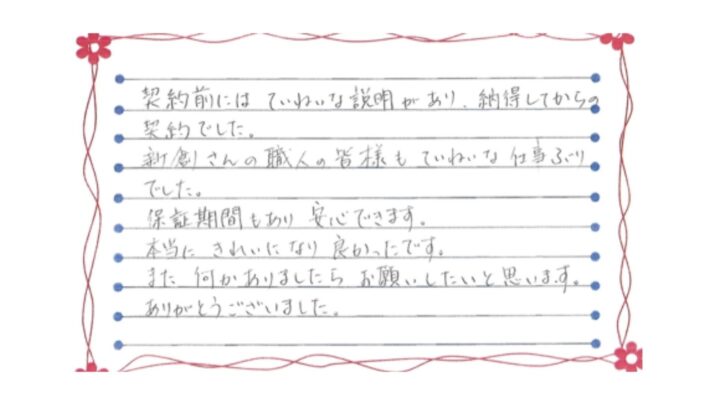 契約前には ていねいな説明があり、納得してからの
契約でした。
新創さんの職人の皆様も ていねいな 仕事ぶり
でした。
保証期間もあり 安心できます。
本当に きれいになり 良かったです。
また 何かありましたら お願いしたいと思います。
ありがとうございました。